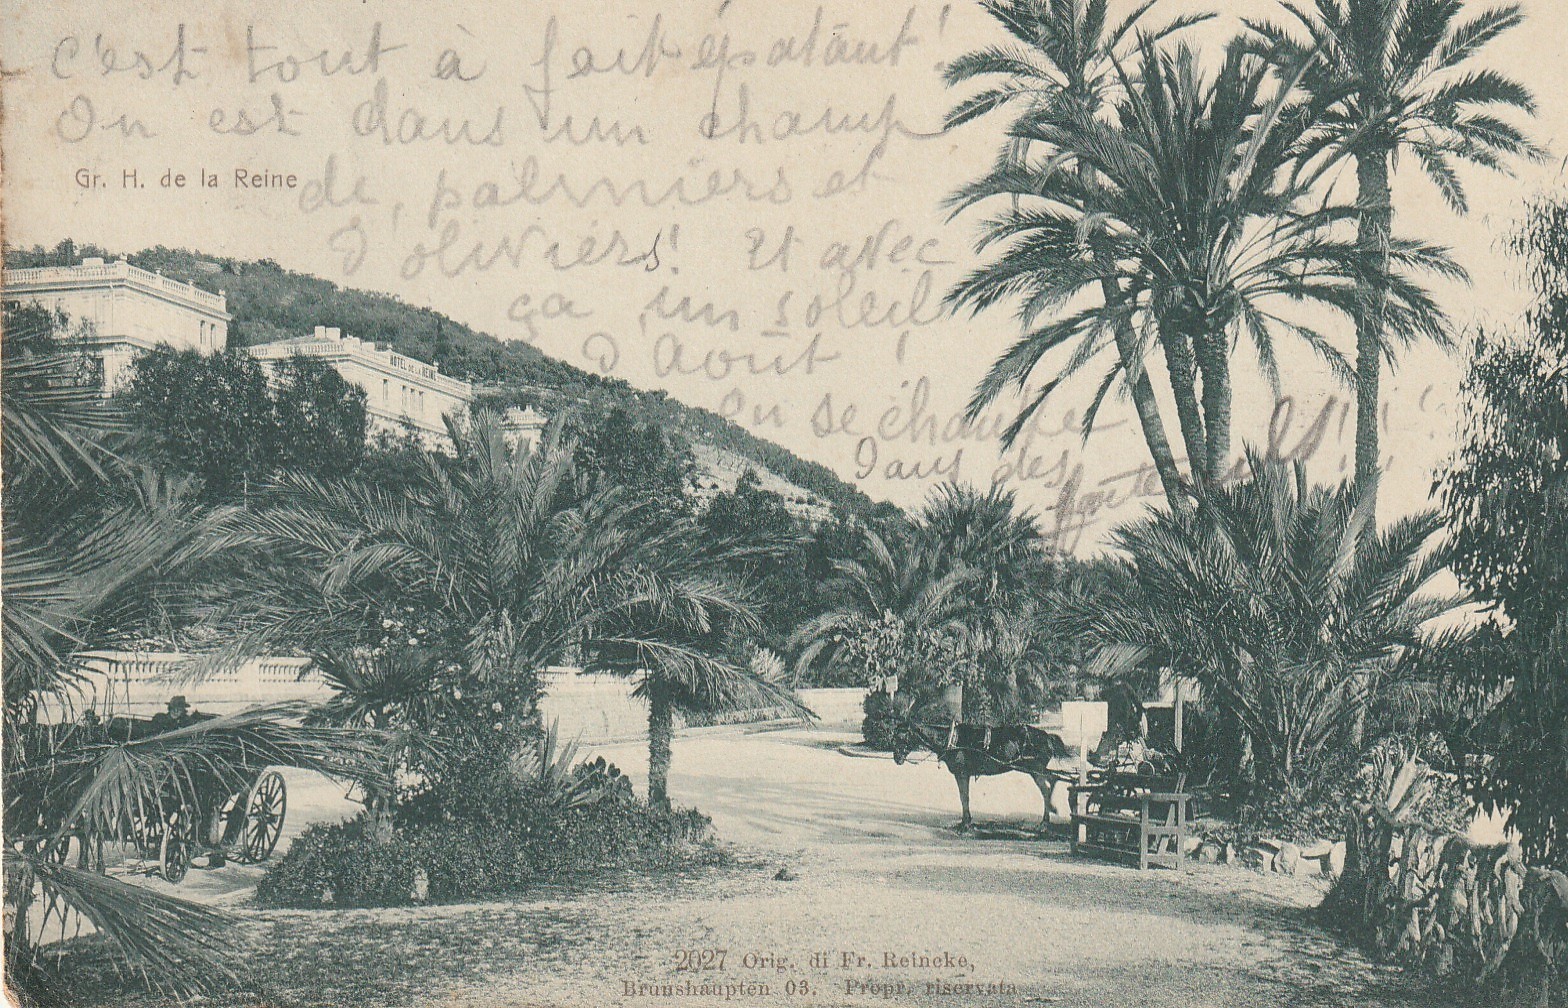 c'est tout à fait épatant!
On est dans un champ
de palmiers et
d'oliviers! Et avec
ça un soleil
d'Août!
On se chauffe
dans des
Gr. H. de la Reine
HOTEL DE LA REINE
2027 Orig. di Fr. Reincke,
Brunshaupten 03. Propr. riservata